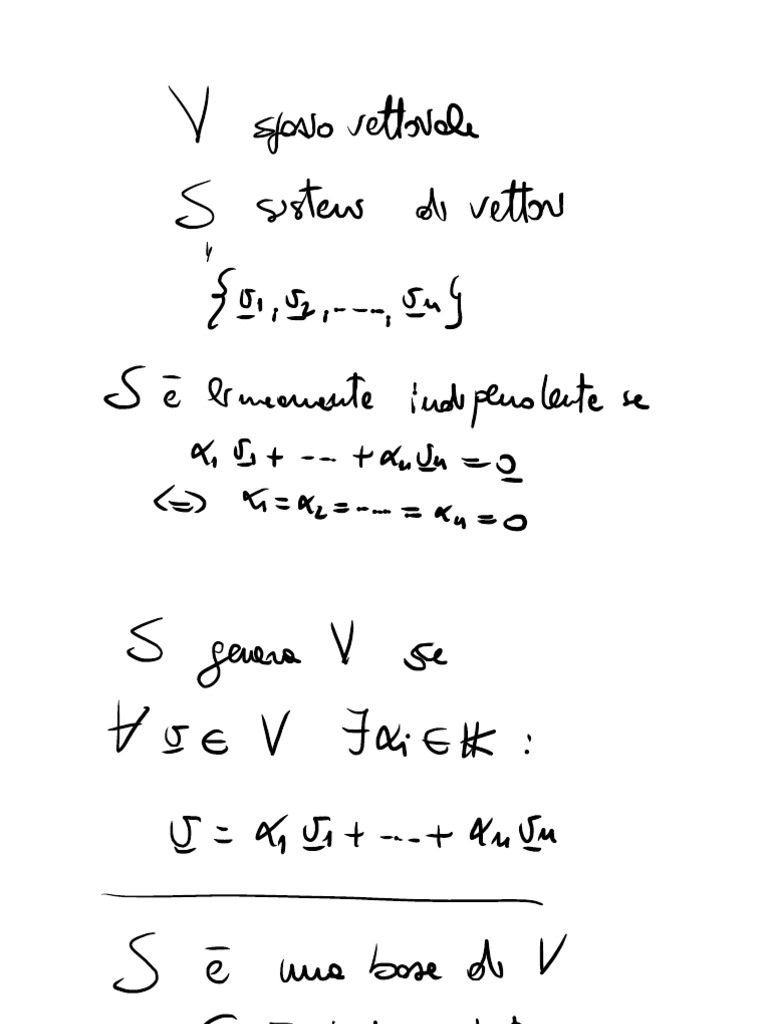 V spazio vettoriale
S sistema di vettori
"
{v1, v2, ..., vn}
S è linearmente indipendente se
α1 v1 + ... + αn vn = 0
<=> α1 = α2 = ... = αn = 0
S genera V se
∀ v ∈ V ∃ αi ∈ K :
v = α1 v1 + ... + αn vn
S è una base di V